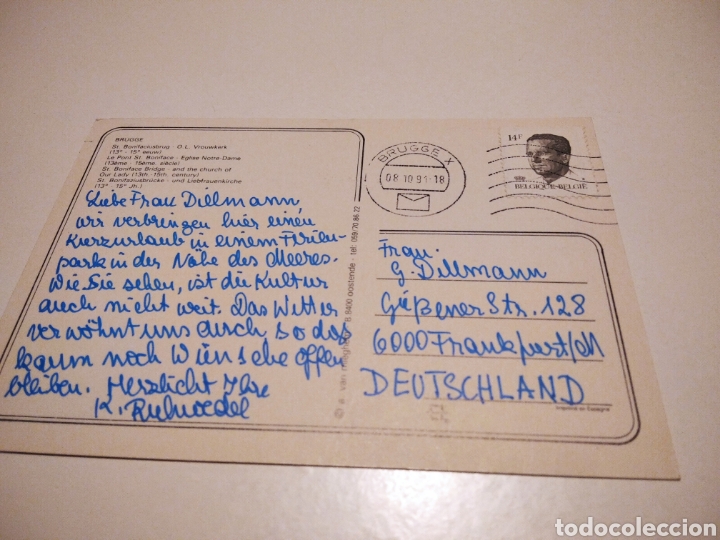 BRUGGE
St. Bonifaciusbrug - O.L. Vrouwkerk
(13e - 15e eeuw)
Le Pont St. Boniface - Eglise Notre-Dame
(13ème - 15ème siècle)
St. Boniface Bridge - and the church of
Our Lady (13th - 15th. century)
St. Bonifaziusbrücke - und Liebfrauenkirche
(13e - 15e Jh.)
Liebe Frau Dillmann,
wir verbringen hier einen
Kurzurlaub in einem Ferien-
park in der Nähe des Meeres.
Wie Sie sehen, ist die Kultur
auch nicht weit. Das Wetter
verwöhnt uns auch, so daß
kaum noch Wünsche offen
bleiben. Herzlichst Ihre
K.
B 8400 oostende - tel: 059/70.86.22
BRUGGE X
08.10.91-18
14F
BELGIQUE-BELGIË
Frau
G. Dillmann
Gießener Str. 128
6000 Frankfurt/M
DEUTSCHLAND
todocoleccion